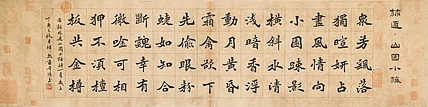 林逋 山園小梅
衆芳搖落
獨暄妍占
盡風情向
小園疎影
橫斜水清
淺暗香浮
動月黃昏
霜禽欲下
先偷眼粉
蜨如知合
斷魂幸有
微吟可相
狎不須檀
板共金樽